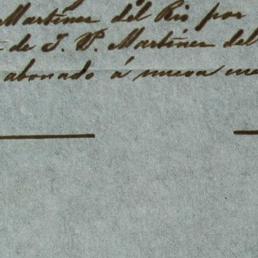 Martinez del Rio por
de J. P. Martinez del
abonado á nueva